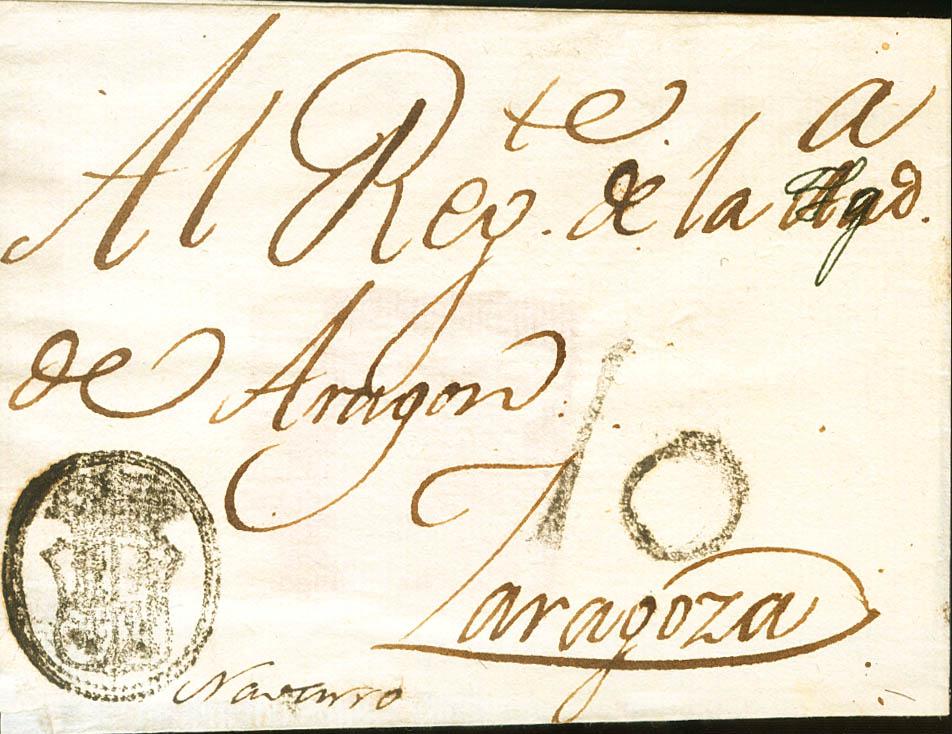 Al Reg.te de la Aud.a
de Aragon.
10
Zaragoza
Navarro